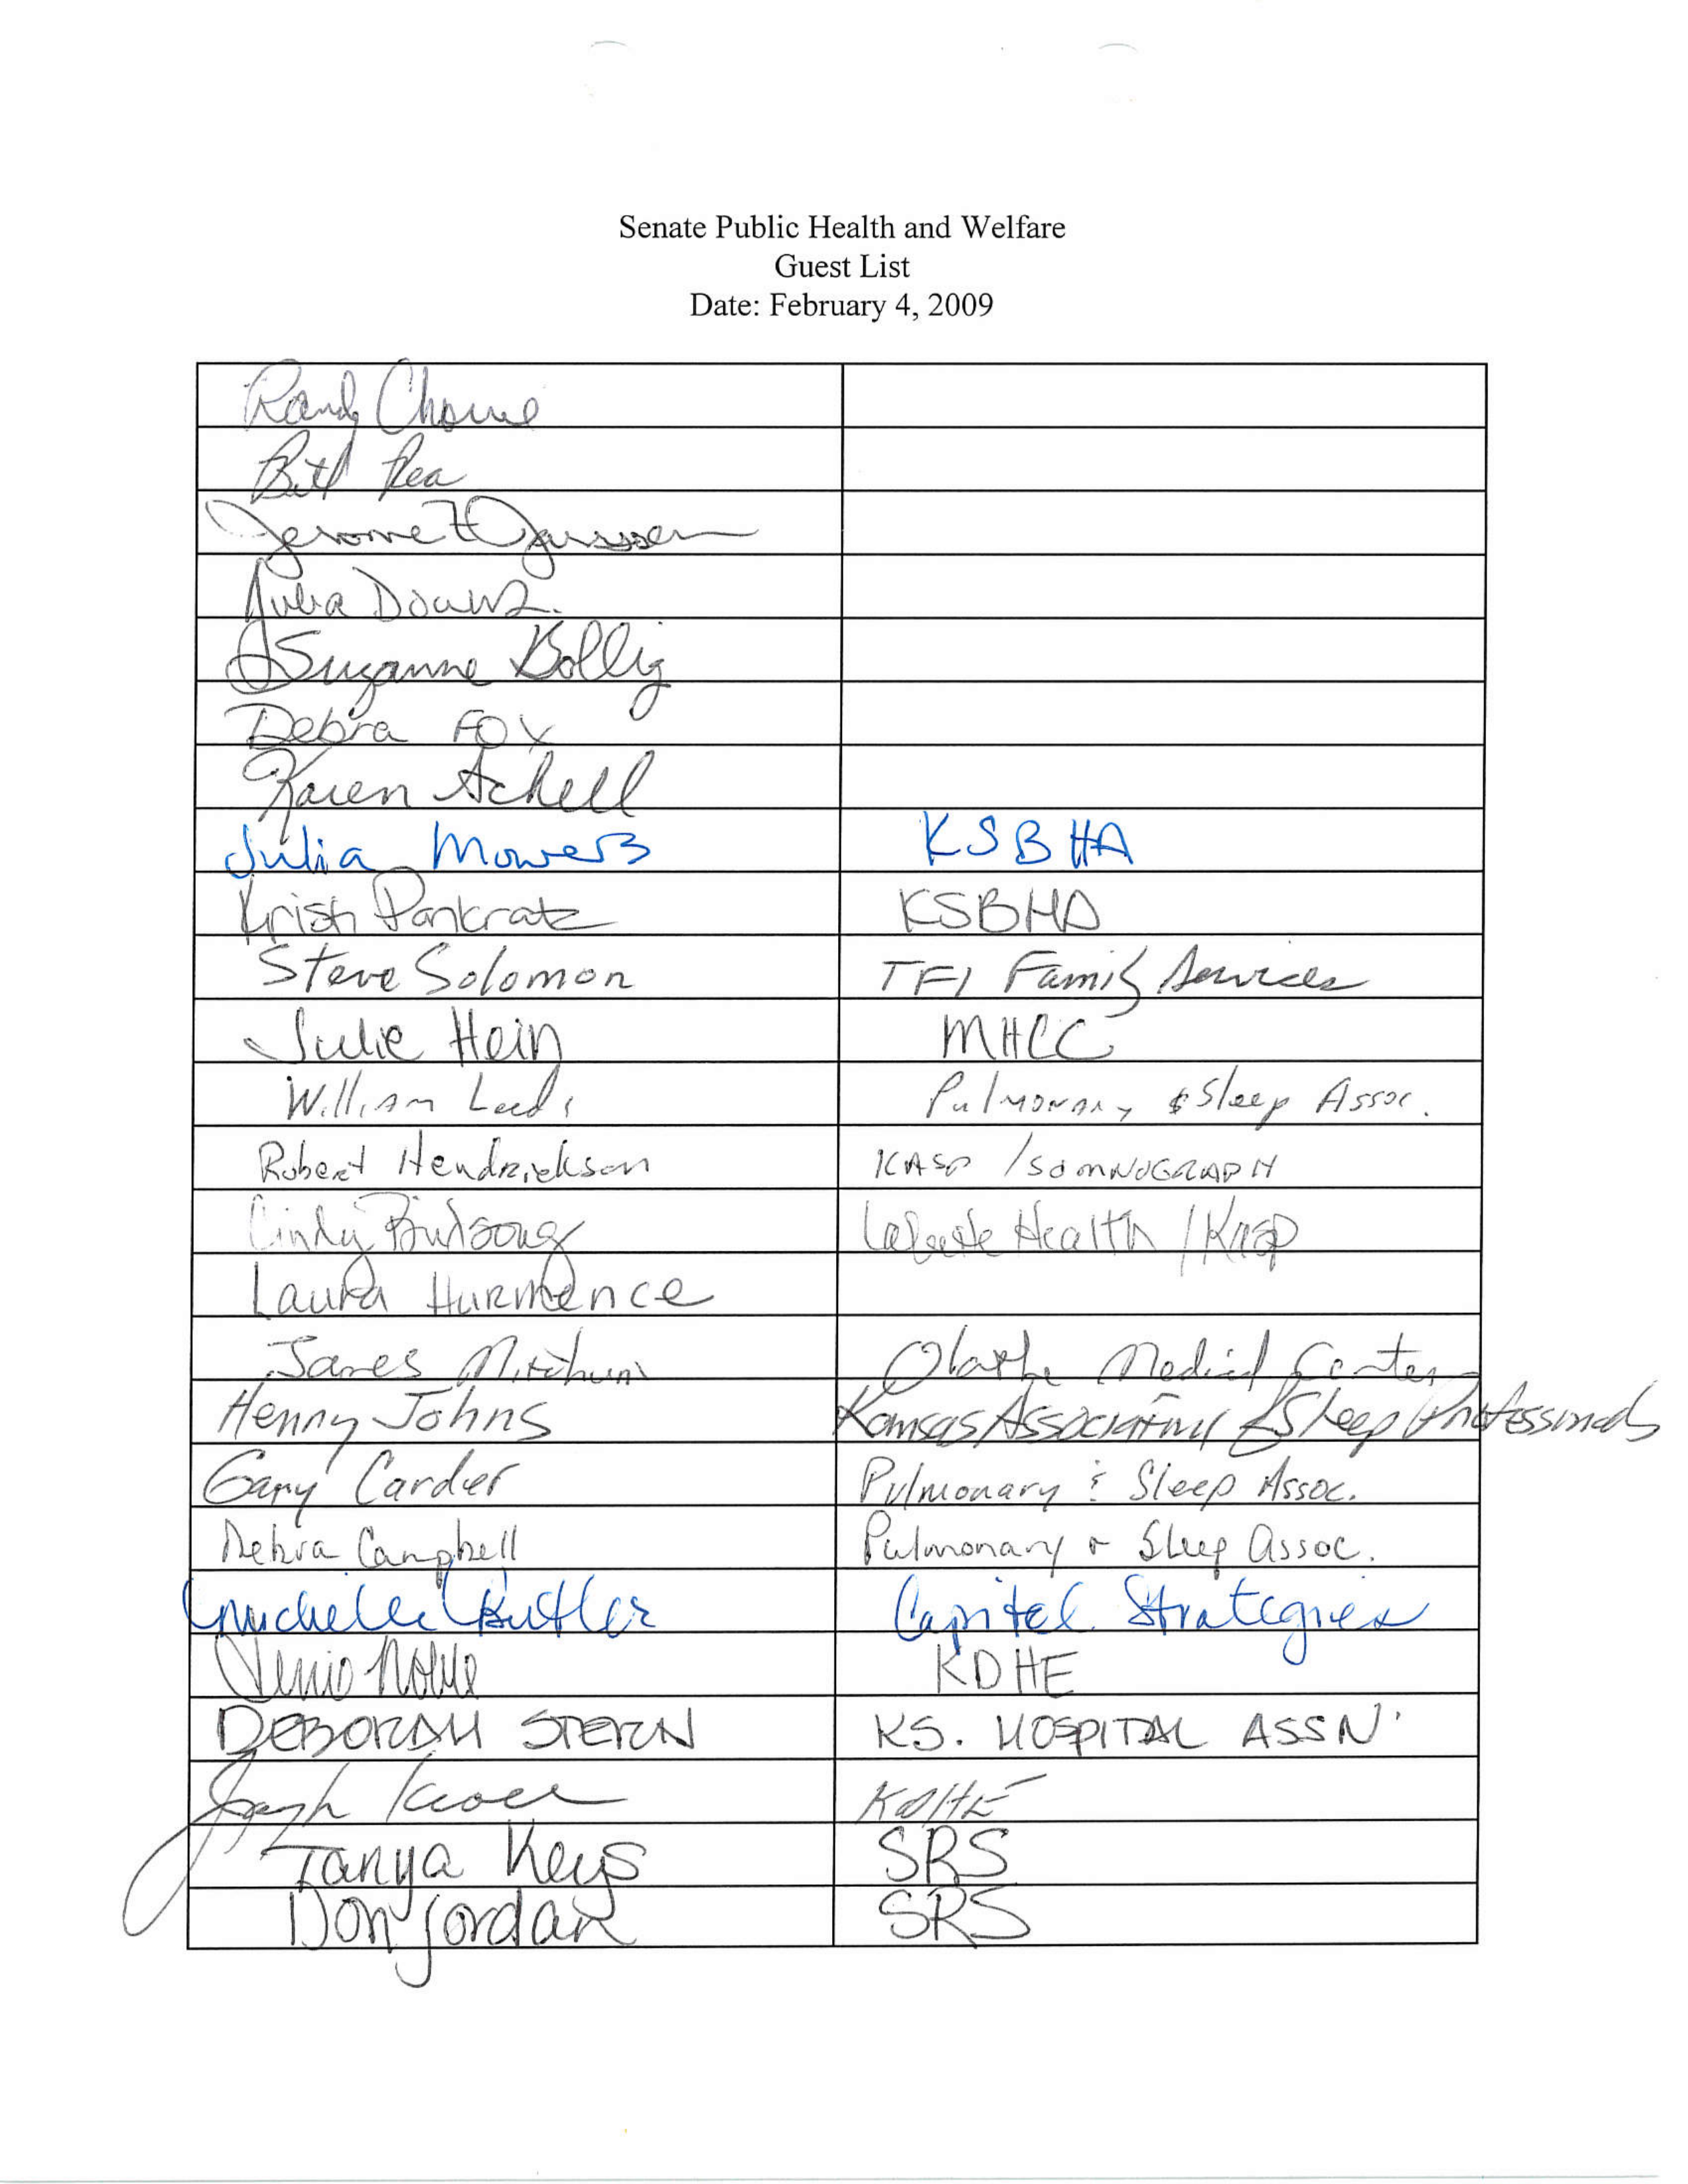 Senate Public Health and Welfare
Guest List
Date: February 4, 2009
Randy
Rea
Jerome
Suzanne Bollig
Debra Fox
Karen Schell
Julia Mowers KSBHA
Krish Pankratz KSBHA
Steve Solomon TFI Family Services
Julie Hein MHCC
William Leeds Pulmonary & Sleep Assoc.
Robert Hendrickson KASP / SOMNOGRAPH
Cindy Birdsong Health / KASP
Laura Hurmence
James Mitchum Olathe Medical Center
Henry Johns Kansas Association of Sleep Professionals
Gary Carder Pulmonary & Sleep Assoc.
Debra Campbell Pulmonary & Sleep Assoc.
Michelle Butler Capitol Strategies
KDHE
DEBORAH STERN KS. HOSPITAL ASSN'
KDHE
Tanya Keys SRS
Don Jordan SRS